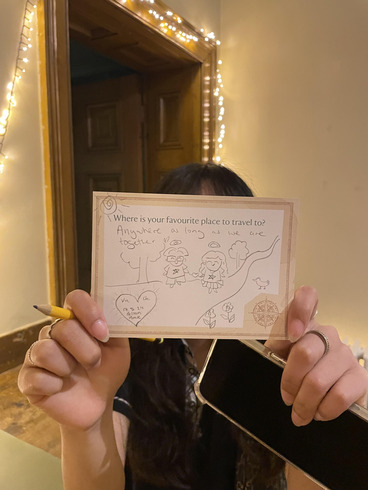 Where is your favourite place to travel to?
Anywhere as long as we are
together